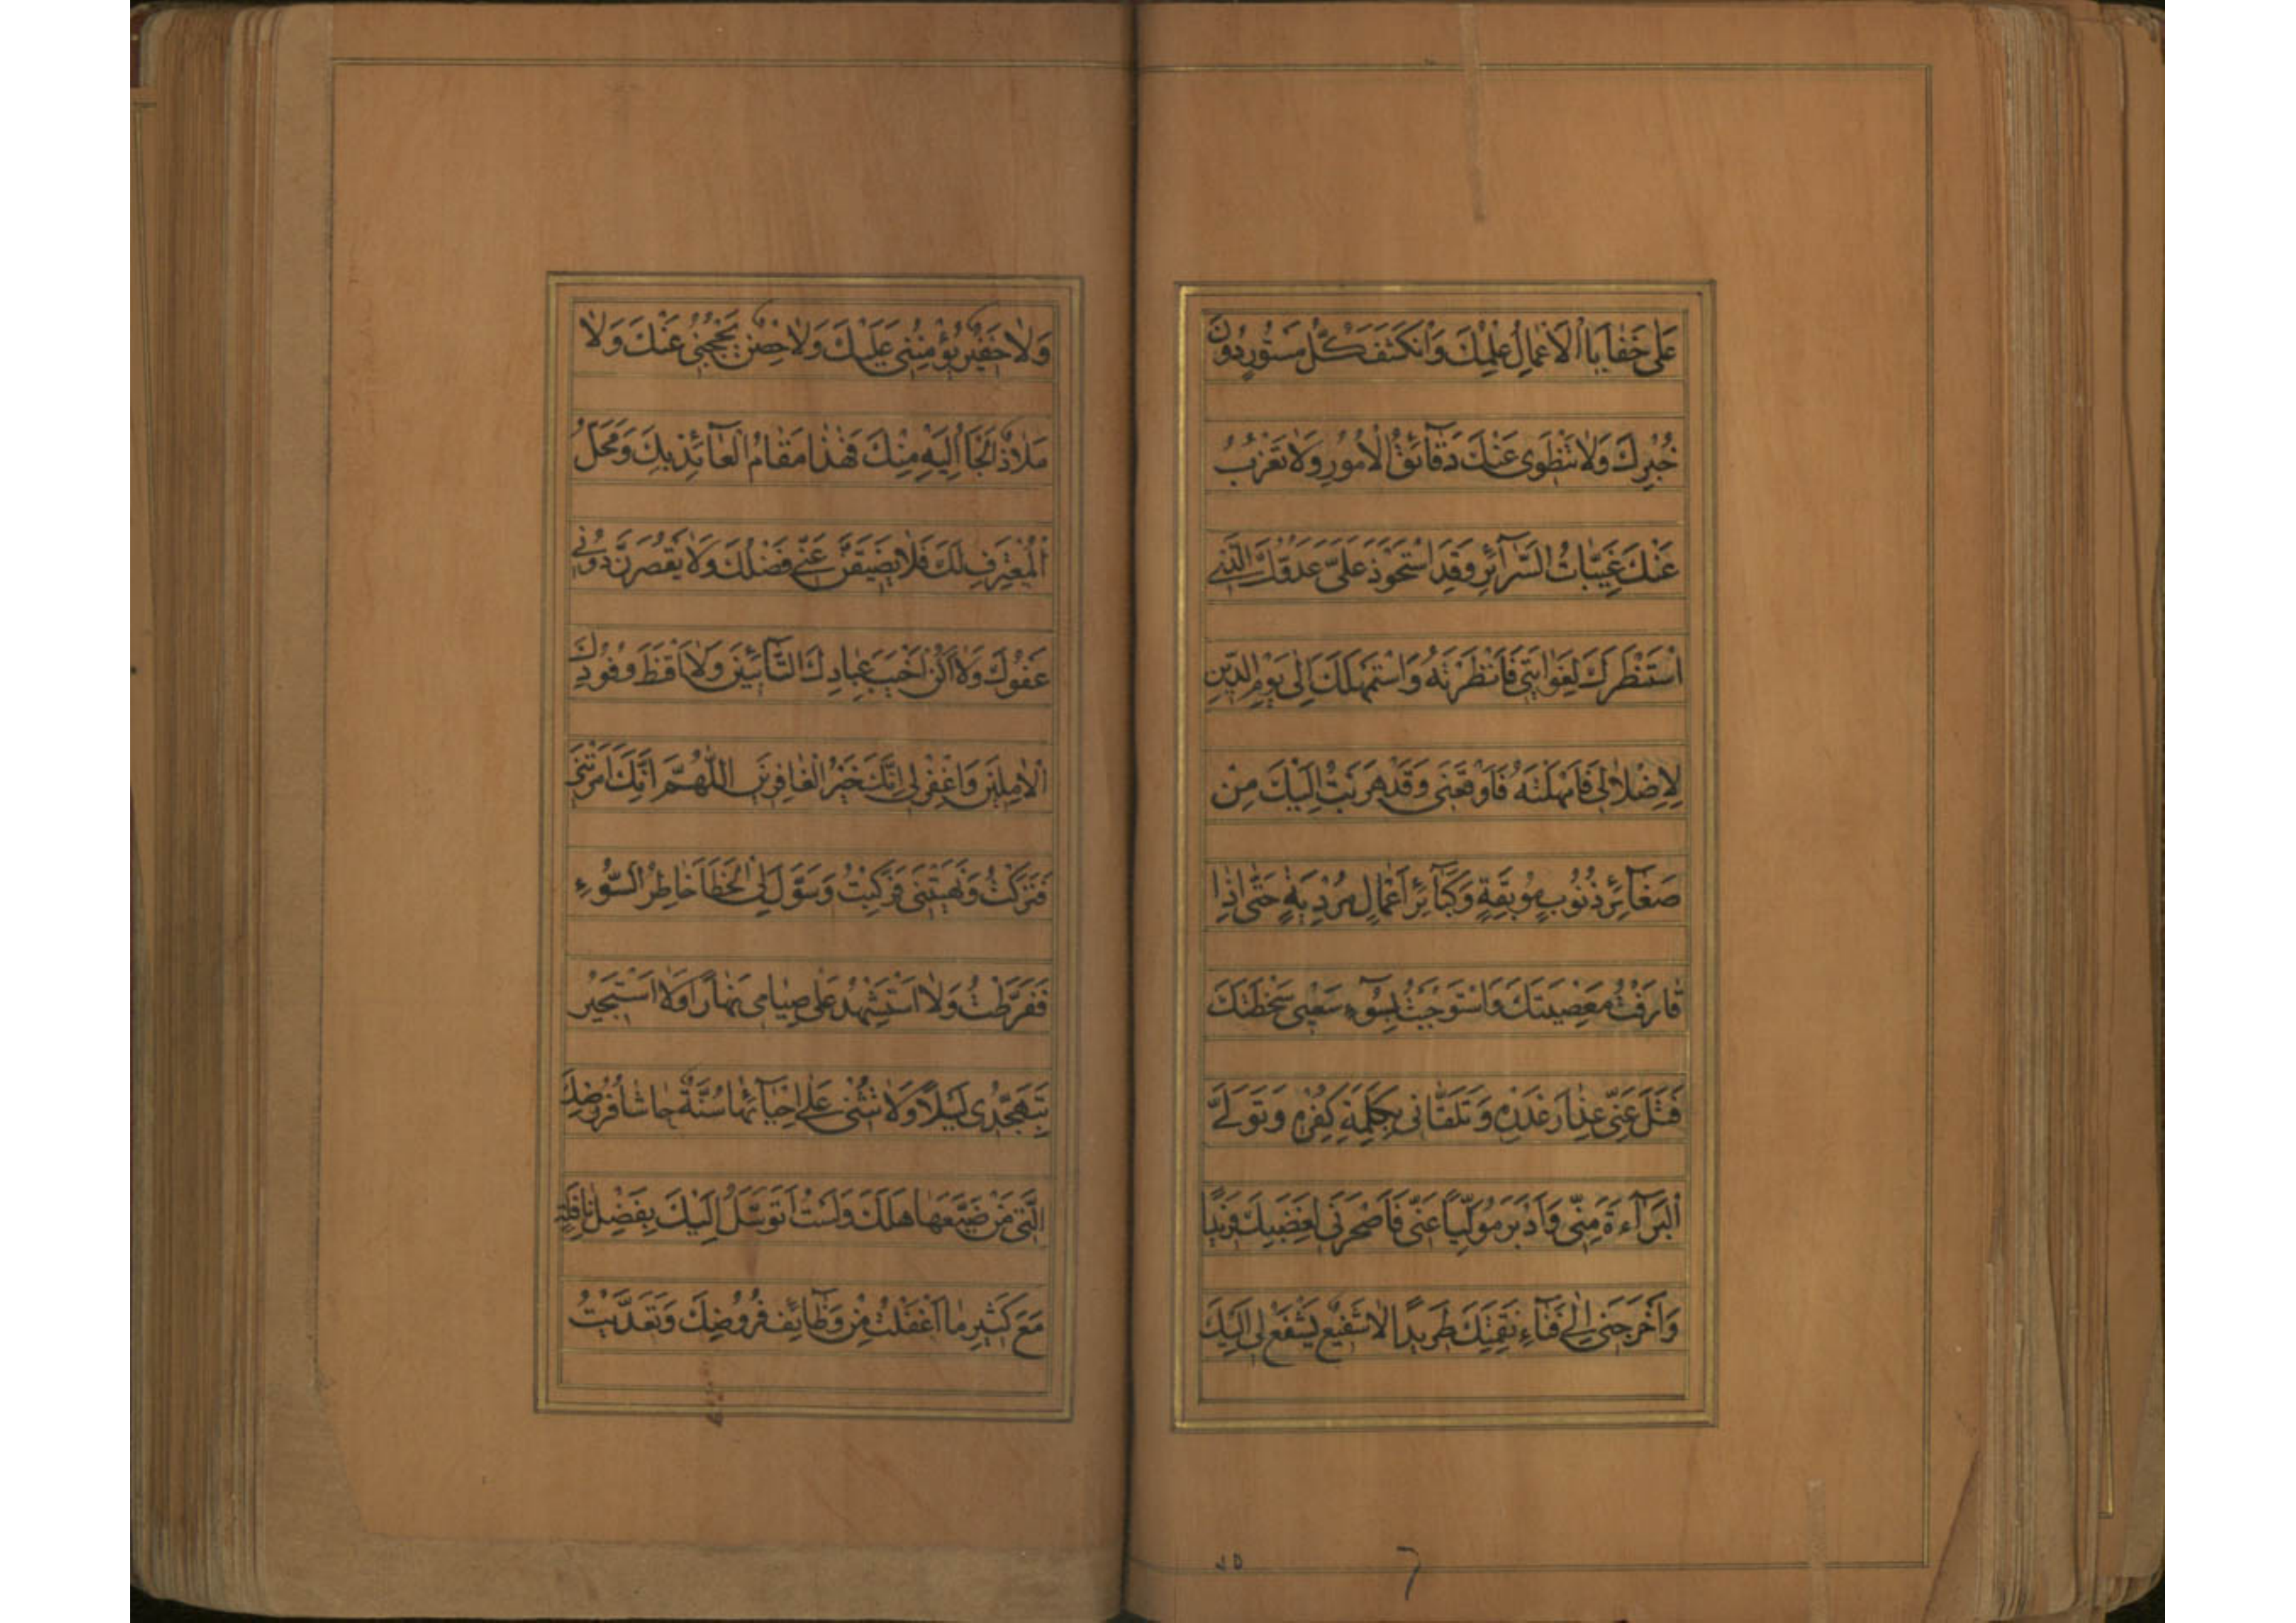 عَلٰى خَفٰايَا الْاَعْمٰالِ عِلْمُكَ وَانْكَشَفَ كُلُّ مَسْتُورٍ دُونَ
خُبْرِكَ وَلٰا تَنْطَوِى عَنْكَ دَقٰآئِقُ الْاُمُورِ وَلٰا تَعْزُبُ
عَنْكَ غَيِّبٰاتُ السَّرٰآئِرِ وَقَدِ اسْتَحْوَذَ عَلَىَّ عَدُوُّكَ الَّذِى
اسْتَنْظَرَكَ لِغَوٰايَتِى فَاَنْظَرْتَهُ وَاسْتَمْهَلَكَ اِلٰى يَوْمِ الدِّينِ
لِاِضْلٰالِى فَاَمْهَلْتَهُ فَاَوْقَعَنِى وَقَدْ هَرَبْتُ اِلَيْكَ مِنْ
صَغٰآئِرِ ذُنُوبٍ مُوبِقَةٍ وَكَبٰآئِرِ اَعْمٰالٍ مُرْدِيَةٍ حَتّٰى اِذٰا
قٰارَفْتُ مَعْصِيَتَكَ وَاسْتَوْجَبْتُ بِسُوٓءِ سَعْيِى سَخْطَتَكَ
فَتَلَ عَنِّى عِذٰارَ غَدْرِهِ وَتَلَقّٰانِى بِكَلِمَةِ كُفْرِهِ وَتَوَلَّى
الْبَرٰآءَةَ مِنِّى وَاَدْبَرَ مُوَلِّيًا عَنِّى فَاَصْحَرَنِى لِغَضَبِكَ فَرِيدًا
وَاَخْرَجَنِى اِلٰى فِنٰآءِ نَقِمَتِكَ طَرِيدًا لٰا شَفِيعٌ يَشْفَعُ لِى اِلَيْكَ
وَلٰا خَفِيرٌ يُؤْمِنُنِى عَلَيْكَ وَلٰا حِصْنٌ يَحْجُبُنِى عَنْكَ وَلٰا
مَلٰاذٌ اَلْجَأُ اِلَيْهِ مِنْكَ فَهٰذٰا مَقٰامُ الْعٰآئِذِ بِكَ وَمَحَلُّ
الْمُعْتَرِفِ لَكَ فَلٰا يَضِيقَنَّ عَنِّى فَضْلُكَ وَلٰا يَقْصُرَنَّ دُونِى
عَفْوُكَ وَلٰا اَكُنْ اَخْيَبَ عِبٰادِكَ التّٰآئِبِينَ وَلٰا اَقْنَطَ وُفُودِكَ
الْاٰمِلِينَ وَاغْفِرْ لِى اِنَّكَ خَيْرُ الْغٰافِرِينَ اَللّٰهُمَّ اِنَّكَ اَمَرْتَنِى
فَتَرَكْتُ وَنَهَيْتَنِى فَرَكِبْتُ وَسَوَّلَ لِىَ الْخَطَآءَ خٰاطِرُ السُّوءِ
فَفَرَّطْتُ وَلٰا اَسْتَشْهِدُ عَلٰى صِيٰامِى نَهٰارًا وَلٰا اَسْتَجِيرُ
بِتَهَجُّدِى لَيْلًا وَلٰا تُثْنِى عَلَىَّ بِاِحْيٰآئِهٰا سُنَّةٌ حٰاشٰا فُرُوضِكَ
الَّتِى مَنْ ضَيَّعَهٰا هَلَكَ وَلَسْتُ اَتَوَسَّلُ اِلَيْكَ بِفَضْلِ نٰافِلَةٍ
مَعَ كَثِيرِ مٰا اَغْفَلْتُ مِنْ وَظٰآئِفِ فُرُوضِكَ وَتَعَدَّيْتُ